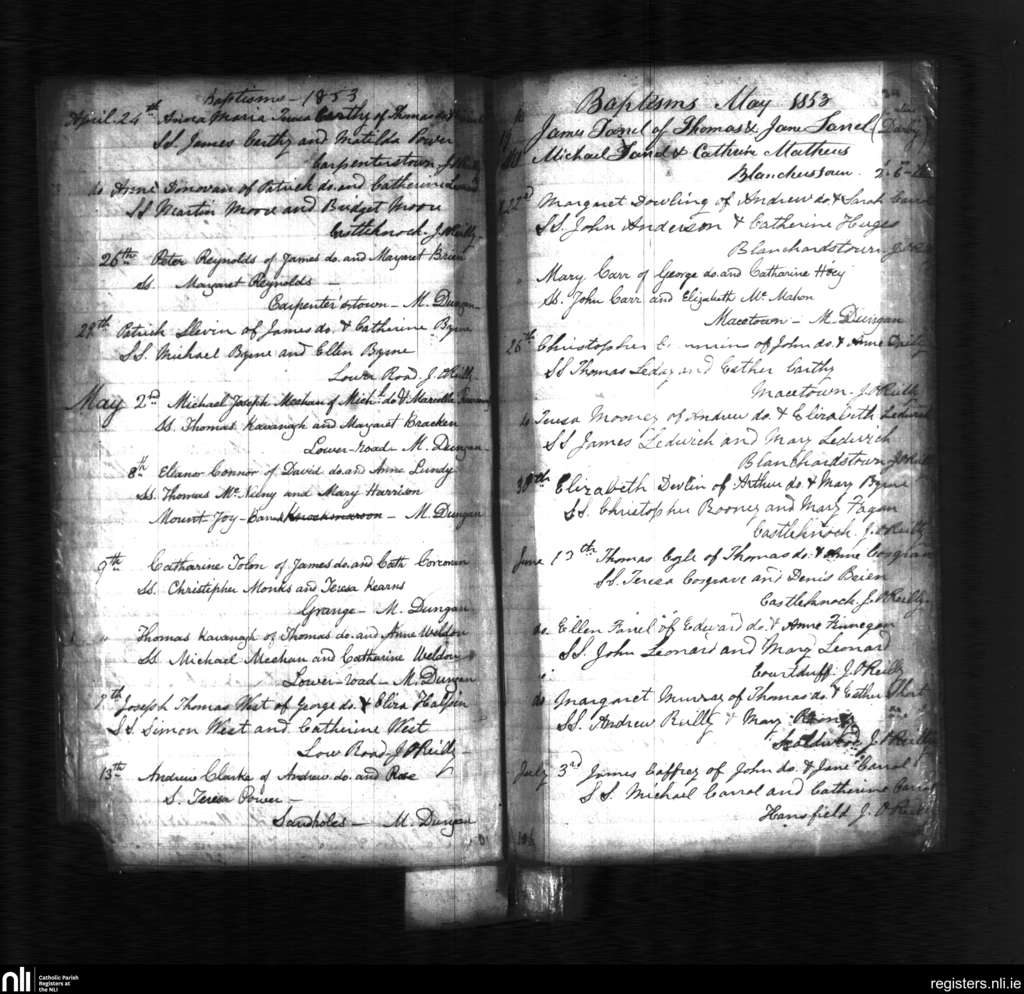 Baptisms - 1853
April 24th Anna Maria Teresa Carthy of Thomas do &
SS James Carthy and Matilda Power
Carpenterstown J. O'Reilly
do Anne Donovan of Patrick do. and Catherine
SS Martin Moore and Bridget Moore
Castleknock. J. O'Reilly
26th Peter Reynolds of James do. and Margaret Brien
Ss. Margaret Reynolds -
Carpenterstown - M. Dungan
29th Patrick Slevin of James do. & Catherine Byrne
SS. Michael Byrne and Ellen Byrne
Lower Road J. O'Reilly
May 2nd Michael Joseph Meehan of Michl. do &
Ss. Thomas Kavanagh and Margaret Bracken
Lower-road - M. Dungan
8th Eleanor Connor of David do. and Anne Lundy
Ss. Thomas Mc and Mary Harrison
Mount Joy - Knockmaroon - M. Dungan
9th Catharine Tolon of James do. and Cath Corcoran
Ss. Christopher Monks and Teresa Kearns
Grange - M. Dungan
" Thomas Kavanagh of Thomas do. and Anne Weldon
Ss. Michael Meehan and Catharine Weldon
Lower-road - M. Dungan
Joseph Thomas West of George do. & Eliza Halpin
SS Simon West and Catherine West
Low Road J. O'Reilly
13th Andrew Clarke of Andrew do. and Rose
S. Teresa Power -
Sandholes - M. Dungan
Baptisms May 1853
James Fanel of Thomas & Jane Fanel (Darby)
Michael Fanel & Cathrin Mathews
22nd Margaret Dowling of Andrew do & Sarah
SS. John Anderson & Catherine Huges
Blanchardstown J. O'Reilly
" Mary Carr of George do. and Catharine Hoey
Ss. John Carr and Elizabeth Mc Mahon
Macetown - M. Dungan
26th Christopher of John do. & Anne Reilly
SS Thomas Leday and Esther Carthy
Macetown. J. O'Reilly
do Teresa Mooney of Andrew do. & Elizabeth Ledwich
SS James Ledwich and Mary Ledwich
Blanchardstown J. O'Reilly
30th Elizabeth Devlin of Arthur do. & Mary Byrne
SS. Christopher Rooney and Mary Fagan
Castleknock. J. O'Reilly
June 13th Thomas Coyle of Thomas do. & Anne Cosgrave
SS. Teresa Cosgrave and Denis Beien
Castleknock. J. O'Reilly
do. Ellen Fanel of Edward do. & Anne Finnegan
SS. John Leonard and Mary Leonard
Courtduff. J. O'Reilly
do Margaret Murray of Thomas do. & Esther Short
SS. Andrew Reilly & Mary
J. O'Reilly
July 3rd James Caffrey of John do. & Jane Carrol
SS. Michael Carrol and Catherine Carrol
Hansfield J. O'Reilly
nli
Catholic Parish
Registers at
the NLI
registers.nli.ie